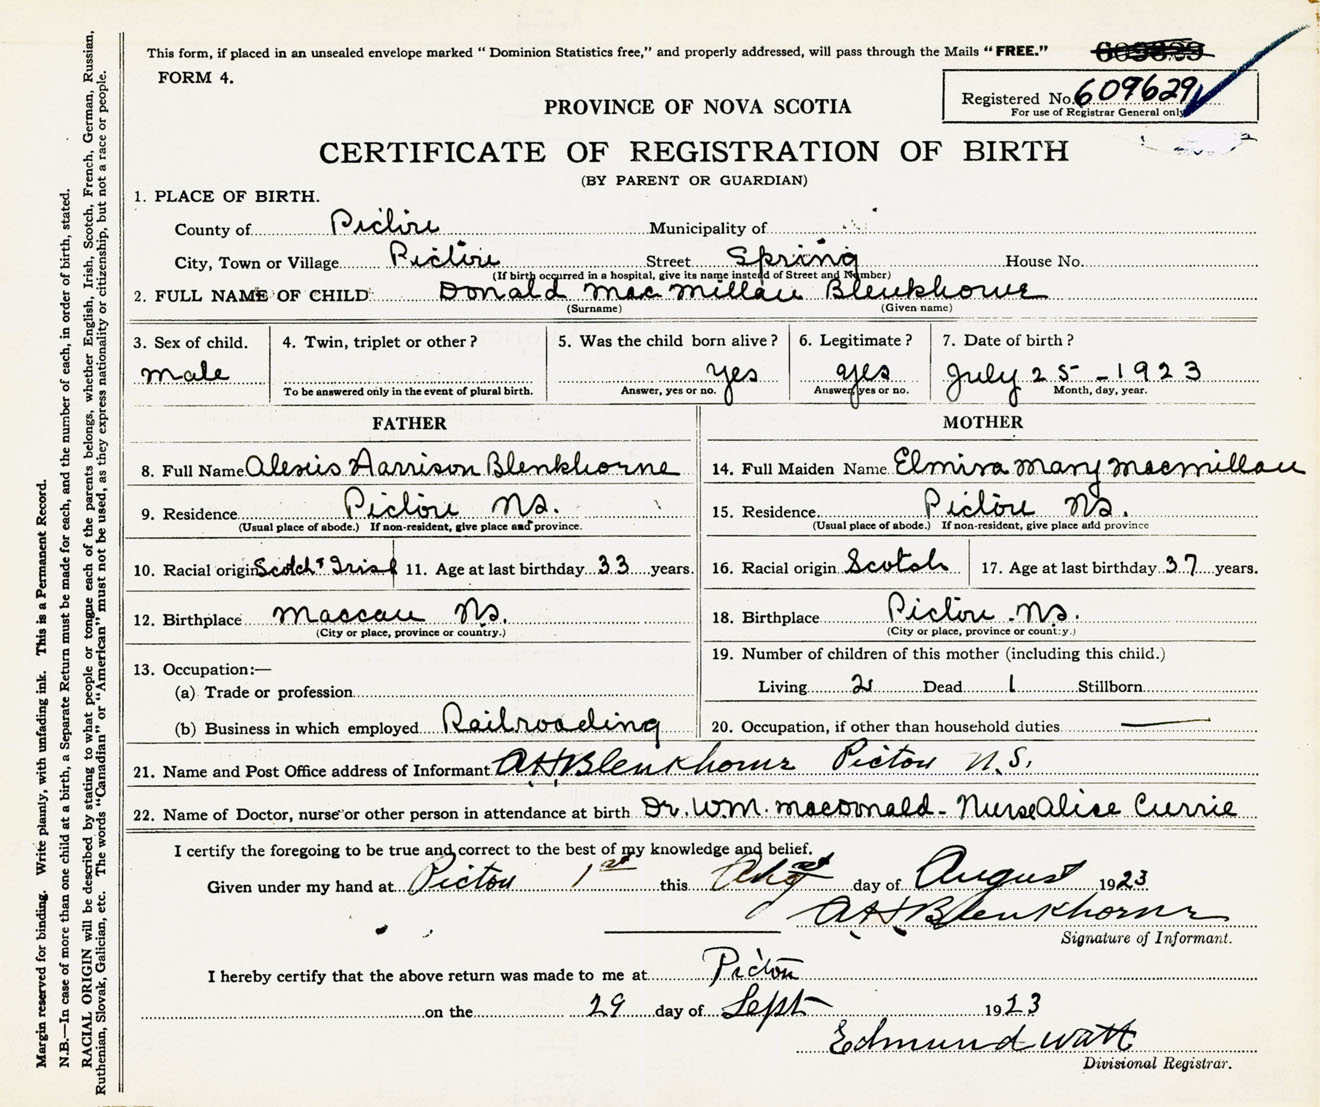 This form, if placed in an unsealed envelope marked "Dominion Statistics free," and properly addressed, will pass through the Mails "FREE."
FORM 4.
PROVINCE OF NOVA SCOTIA
Registered No. 609629
For use of Registrar General only
CERTIFICATE OF REGISTRATION OF BIRTH
(BY PARENT OR GUARDIAN)
1. PLACE OF BIRTH.
County of Pictou Municipality of
City, Town or Village Pictou Street Spring House No.
(If birth occurred in a hospital, give its name instead of Street and Number)
2. FULL NAME OF CHILD Donald MacMillan Blenkhorne
(Surname) (Given name)
3. Sex of child. male
4. Twin, triplet or other?
To be answered only in the event of plural birth.
5. Was the child born alive? yes
Answer, yes or no.
6. Legitimate? yes
Answer, yes or no.
7. Date of birth? July 25 - 1923
Month, day, year.
FATHER
8. Full Name Alexis Harrison Blenkhorne
9. Residence Pictou Ns.
(Usual place of abode.) If non-resident, give place and province.
10. Racial origin Scotch & Irish 11. Age at last birthday 33 years.
12. Birthplace Maccan Ns.
(City or place, province or country.)
13. Occupation:—
(a) Trade or profession
(b) Business in which employed Railroading
MOTHER
14. Full Maiden Name Elmira Mary Macmillan
15. Residence Pictou Ns.
(Usual place of abode.) If non-resident, give place and province
16. Racial origin Scotch 17. Age at last birthday 37 years.
18. Birthplace Pictou Ns.
(City or place, province or country.)
19. Number of children of this mother (including this child.)
Living 2 Dead 1 Stillborn
20. Occupation, if other than household duties —
21. Name and Post Office address of Informant A H Blenkhorne Pictou N.S.
22. Name of Doctor, nurse or other person in attendance at birth Dr. W.M. Macdonald - Nurse Alice Currie
I certify the foregoing to be true and correct to the best of my knowledge and belief.
Given under my hand at Pictou 1st this day of August 1923
A H Blenkhorne
Signature of Informant.
I hereby certify that the above return was made to me at Pictou
on the 29 day of Sept 1923
Edmund Watt
Divisional Registrar.
Margin reserved for binding. Write plainly, with unfading ink. This is a Permanent Record.
N.B.—In case of more than one child at a birth, a Separate Return must be made for each, and the number of each, in order of birth, stated.
RACIAL ORIGIN will be described by stating to what people or tongue each of the parents belongs, whether English, Irish, Scotch, French, German, Russian,
Ruthenian, Slovak, Galician, etc. The words "Canadian" or "American" must not be used, as they express nationality or citizenship, but not a race or people.